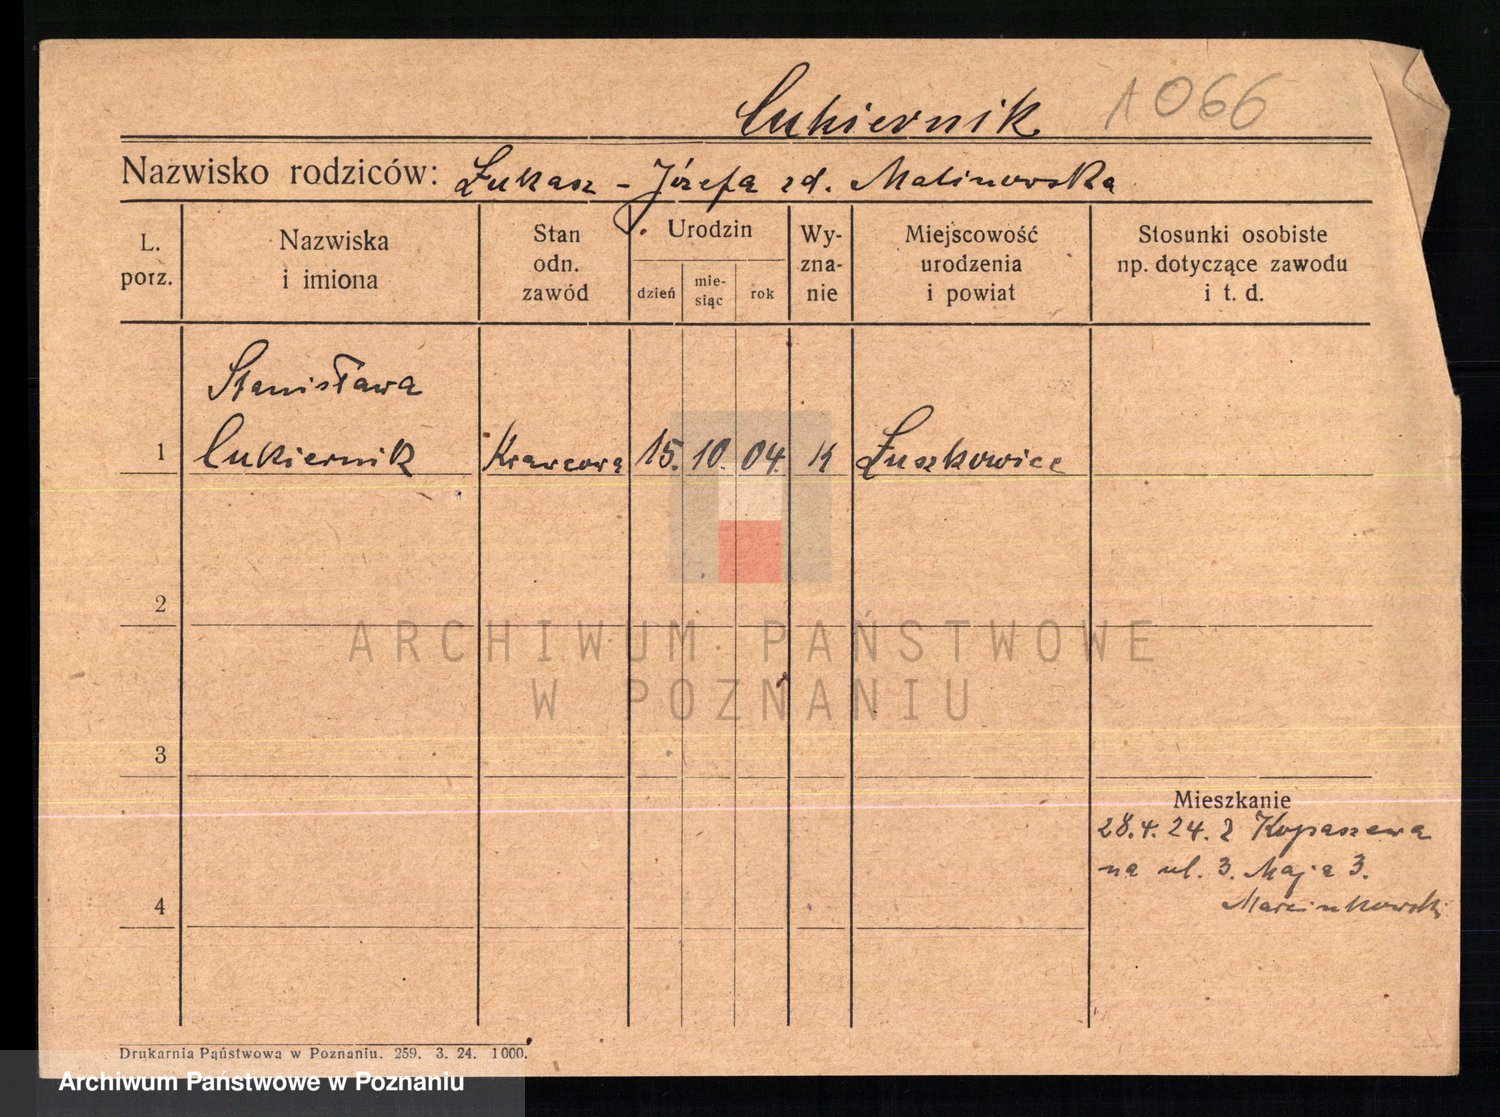 Cukiernik 1066
Nazwisko rodziców: Łukasz - Józefa zd. Malinowska
L. porz.
Nazwiska i imiona
Stan odn. zawód
Urodzin
dzień
mie-siąc
rok
Wy-zna-nie
Miejscowość urodzenia i powiat
Stosunki osobiste np. dotyczące zawodu i t. d.
Stanisława
1 Cukiernik Krawcowa 15. 10. 04. K Łuszkowice
2
ARCHIWUM PAŃSTWOWE
W POZNANIU
3
Mieszkanie
28.4.24. z Kopaszewa
na ul. 3. Maja 3.
Marcinkowski
4
Drukarnia Państwowa w Poznaniu. 259. 3. 24. 1000.
Archiwum Państwowe w Poznaniu